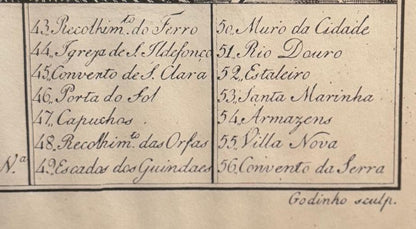 43. Recolhim.to do Ferro
44. Igreja de S. Ildefonço
45. Convento de S. Clara
46. Porta do Sol
47. Capuchos
48. Recolhim.to das Orfas
N.a
49. Escadas dos Guindaes
50. Muro da Cidade
51. Rio Douro
52. Estaleiro
53. Santa Marinha
54. Armazens
55. Villa Nova
56. Convento da Serra
Godinho sculp.